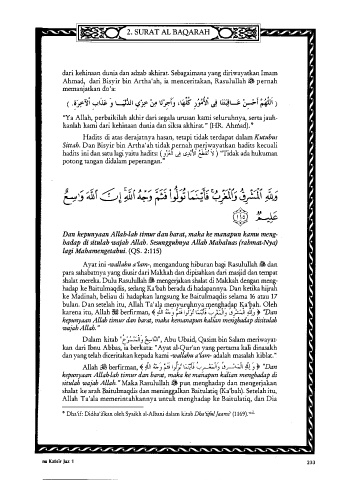 2. SURAT AL BAQARAH
dari kehinaan dunia dan adzab akhirat. Sebagaimana yang diriwayatkan Imam
Ahmad, dari Bisyir bin Artha'ah, ia menceritakan, Rasulullah ﷺ pernah
memanjatkan do'a:
( اَللَّهُمَّ أَحْسِنْ عَاقِبَتَنَا فِي الْأُمُوْرِ كُلِّهَا، وَأَجِرْنَا مِنْ خِزْيِ الدُّنْيَا وَ عَذَابِ الْآخِرَةِ. )
"Ya Allah, perbaikilah akhir dari segala urusan kami seluruhnya, serta jauh-
kanlah kami dari kehinaan dunia dan siksa akhirat." (HR. Ahmad).*
Hadits di atas derajatnya hasan, tetapi tidak terdapat dalam Kutubus
Sittah. Dan Bisyir bin Artha'ah tidak pernah meriwayatkan hadits kecuali
hadits ini dan satu lagi yaitu hadits: ( لاَ تُقْطَعُ الْأَيْدِى فِى الْغَزْوِ ) "Tidak ada hukuman
potong tangan didalam peperangan."
وَلِلَّهِ الْمَشْرِقُ وَالْمَغْرِبُ فَأَيْنَمَا تُوَلُّوا فَثَمَّ وَجْهُ اللَّهِ إِنَّ اللَّهَ وَاسِعٌ
عَلِيمٌ ١١٥
Dan kepunyaan Allah-lah timur dan barat, maka ke manapun kamu meng-
hadap di situlah wajah Allah. Sesungguhnya Allah Mahaluas (rahmat-Nya)
lagi Mahamengetahui. (QS. 2:115)
Ayat ini -wallahu a'lam-, mengandung hiburan bagi Rasulullah ﷺ dan
para sahabatnya yang diusir dari Makkah dan dipisahkan dari masjid dan tempat
shalat mereka. Dulu Rasulullah ﷺ mengerjakan shalat di Makkah dengan meng-
hadap ke Baitulmaqdis, sedang Ka'bah berada di hadapannya. Dan ketika hijrah
ke Madinah, beliau di hadapkan langsung ke Baitulmaqdis selama 16 atau 17
bulan. Dan setelah itu, Allah Ta'ala menyuruhnya menghadap Ka'bah. Oleh
karena itu, Allah ﷻ berfirman, ﴾ وَلِلَّهِ الْمَشْرِقُ وَالْمَغْرِبُ فَأَيْنَمَا تُوَلُّوا فَثَمَّ وَجْهُ اللَّهِ ﴿ "Dan
kepunyaan Allah-lah timur dan barat, maka kemanapun kalian menghadap disitulah
wajah Allah."
Dalam kitab "النَّاسِخُ وَالْمَنْسُوْخُ", Abu Ubaid, Qasim bin Salam meriwayat-
kan dari Ibnu Abbas, ia berkata: "Ayat al-Qur'an yang pertama kali dinasakh
dan yang telah diceritakan kepada kami -wallahu a'lam- adalah masalah kiblat."
Allah ﷻ berfirman, ﴾ وَلِلَّهِ الْمَشْرِقُ وَالْمَغْرِبُ فَأَيْنَمَا تُوَلُّوا فَثَمَّ وَجْهُ اللَّهِ ﴿ "Dan
kepunyaan Allah-lah timur dan barat, maka ke manapun kalian menghadap di
situlah wajah Allah." Maka Rasulullah ﷺ pun menghadap dan mengerjakan
shalat ke arah Baitulmaqdis dan meninggalkan Baitulatiq (Ka'bah). Setelah itu,
Allah Ta'ala memerintahkannya untuk menghadap ke Baitulatiq, dan Dia
* Dha'if: Didha'ifkan oleh Syaikh al-Albani dalam kitab Dha'iiful Jaami' (1169).
Katsir Juz 1
233